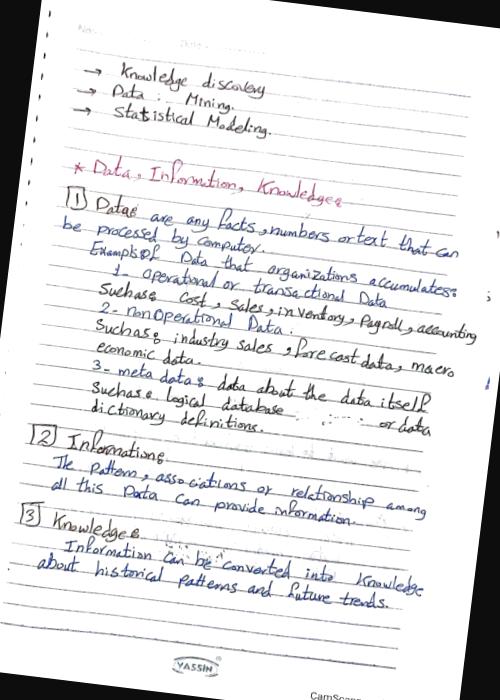 → Knowledge discovery
→ Data: Mining.
→ Statistical Modeling.
* Data, Information, Knowledge:
1 Data: are any facts, numbers or text that can
be processed by computer.
Examples of Data that organizations accumulates:
1- operational or transactional Data
Suchas: Cost, Sales, inventory, Payroll, accounting
2- nonOperational Data.
Suchas: industry sales, forecost data, macro
economic data.
3- meta data: data about the data itself
Suchas: logical database or data
dictionary definitions.
2 Information:
The Pattern, associations or relationship among
all this Data Can provide information.
3 Knowledge:
Information Can be converted into Knowledge
about historical patterns and future trends.
YASSIN